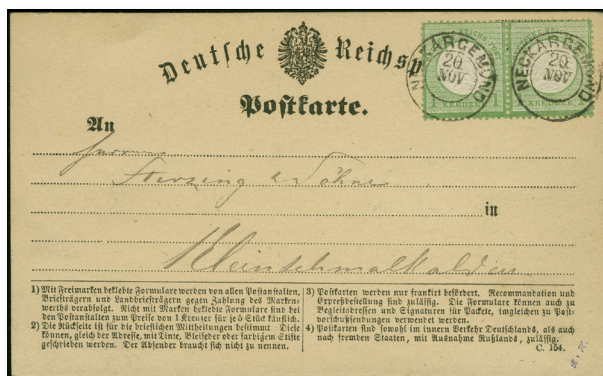 Deutsche Reichsp
Postkarte.
NECKARGEMÜND
20
NOV
NECKARGEMÜND
20
NOV
1 KREUZER 1
KREUZER
An
Herrn
& Söhne
in
Kleinschmalkalden
1) Mit Freimarken beklebte Formulare werden von allen Postanstalten,
Briefträgern und Landbriefträgern gegen Zahlung des Marken-
werths verabfolgt. Nicht mit Marken beklebte Formulare sind bei
den Postanstalten zum Preise von 1 Kreuzer für je 5 Stück käuflich.
2) Die Rückseite ist für die brieflichen Mittheilungen bestimmt. Diese
können, gleich der Adresse, mit Tinte, Bleifeder oder farbigem Stifte
geschrieben werden. Der Absender braucht sich nicht zu nennen.
3) Postkarten werden nur frankirt befördert. Recommandation und
Expreßbestellung sind zulässig. Die Formulare können auch zu
Begleitadressen und Signaturen für Packete, imgleichen zu Post-
vorschußsendungen verwendet werden.
4) Postkarten sind sowohl im innern Verkehr Deutschlands, als auch
nach fremden Staaten, mit Ausnahme Rußlands, zulässig.
C. 154.